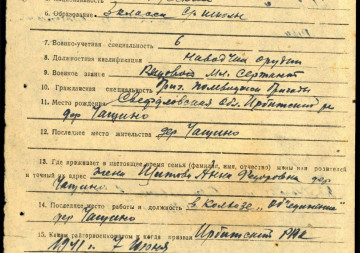 6. Образование 3 класса с/школы
7. Военно-учетная специальность 6
8. Должностная квалификация Наводчик орудия
9. Военное звание Рядовой Мл. Сержант
10. Гражданская специальность бригады
11. Место рождения Свердловская обл. Ирбитский р-н
дер Чащино
12. Последнее место жительства дер Чащино
13. Где проживает в настоящее время семья (фамилия, имя, отчество) жены или родителей
и точный их адрес Анна Федоровна дер
Чащино
14. Последнее место работы и должность в Колхозе „Объединение"
дер Чащино
15. Каким райвоенкоматом и когда призван Ирбитский РВК
1941 г. 7 Июня